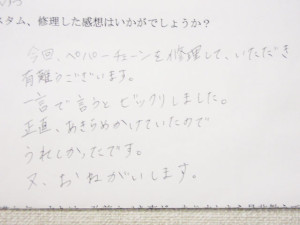 スタム、修理した感想はいかがでしょうか?
今回、ペパーチェーンを修理して、いただき
有難うございます。
一言で言うとビックリしました。
正直、あきらめかけていたので
うれしかったです。
又、おねがいします。